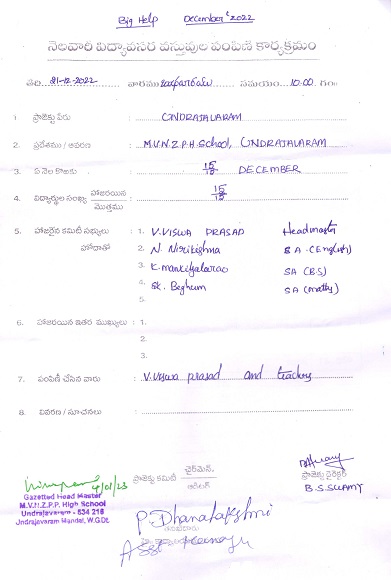 Big Help December 2022
నెలవారీ విద్యావసర వస్తువుల పంపిణీ కార్యక్రమం
తేది. 21-12-2022 వారము బుధవారము సమయం. 10:00 గం
1 ప్రాజెక్టు పేరు : UNDRAJAVARAM
2. ప్రదేశము / ఆవరణ : M.V.N.Z.P.H. School, UNDRAJAVARAM
3. ఏ నెల కొరకు : DECEMBER
4. విద్యార్థుల సంఖ్య హాజరయిన / మొత్తము : 15
5. హాజరైన కమిటీ సభ్యులు హోదాతో : 1. V. VISWA PRASAD Headmaster
2. N. S.A. (English)
3. K. Mankyalarao SA (B.S)
4. SK. Beghum SA (maths)
5.
6. హాజరయిన ఇతర ముఖ్యులు : 1.
2.
3.
7. పంపిణీ చేసిన వారు : V. Viswa prasad and teachers
8. వివరణ / సూచనలు :
4/01/23 ప్రాజెక్టు కమిటీ ఛైర్మెన్. ప్రాజెక్టు డైరెక్టర్
Gazetted Head Master B.S. SWAMY
M.V.N.Z.P.P. High School
Undrajavaram - 534 216
Undrajavaram Mandal, W.G.Dt.
P. Dhanalakshmi